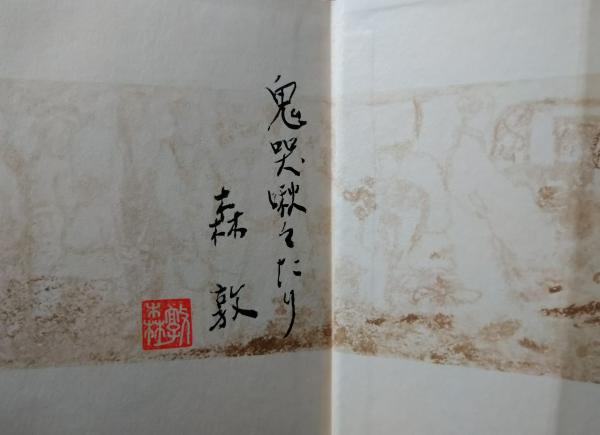 鬼哭啾々たり
森敦
森敦